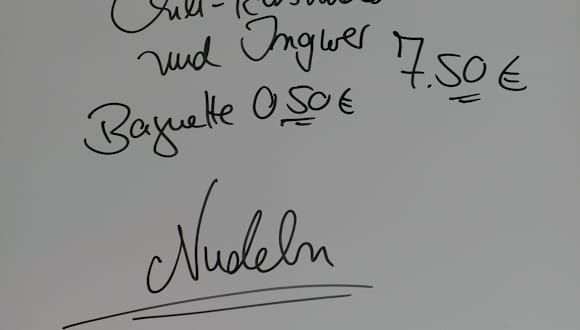 Chili-
und Ingwer 7.50 €
Baguette 0.50 €
Nudeln